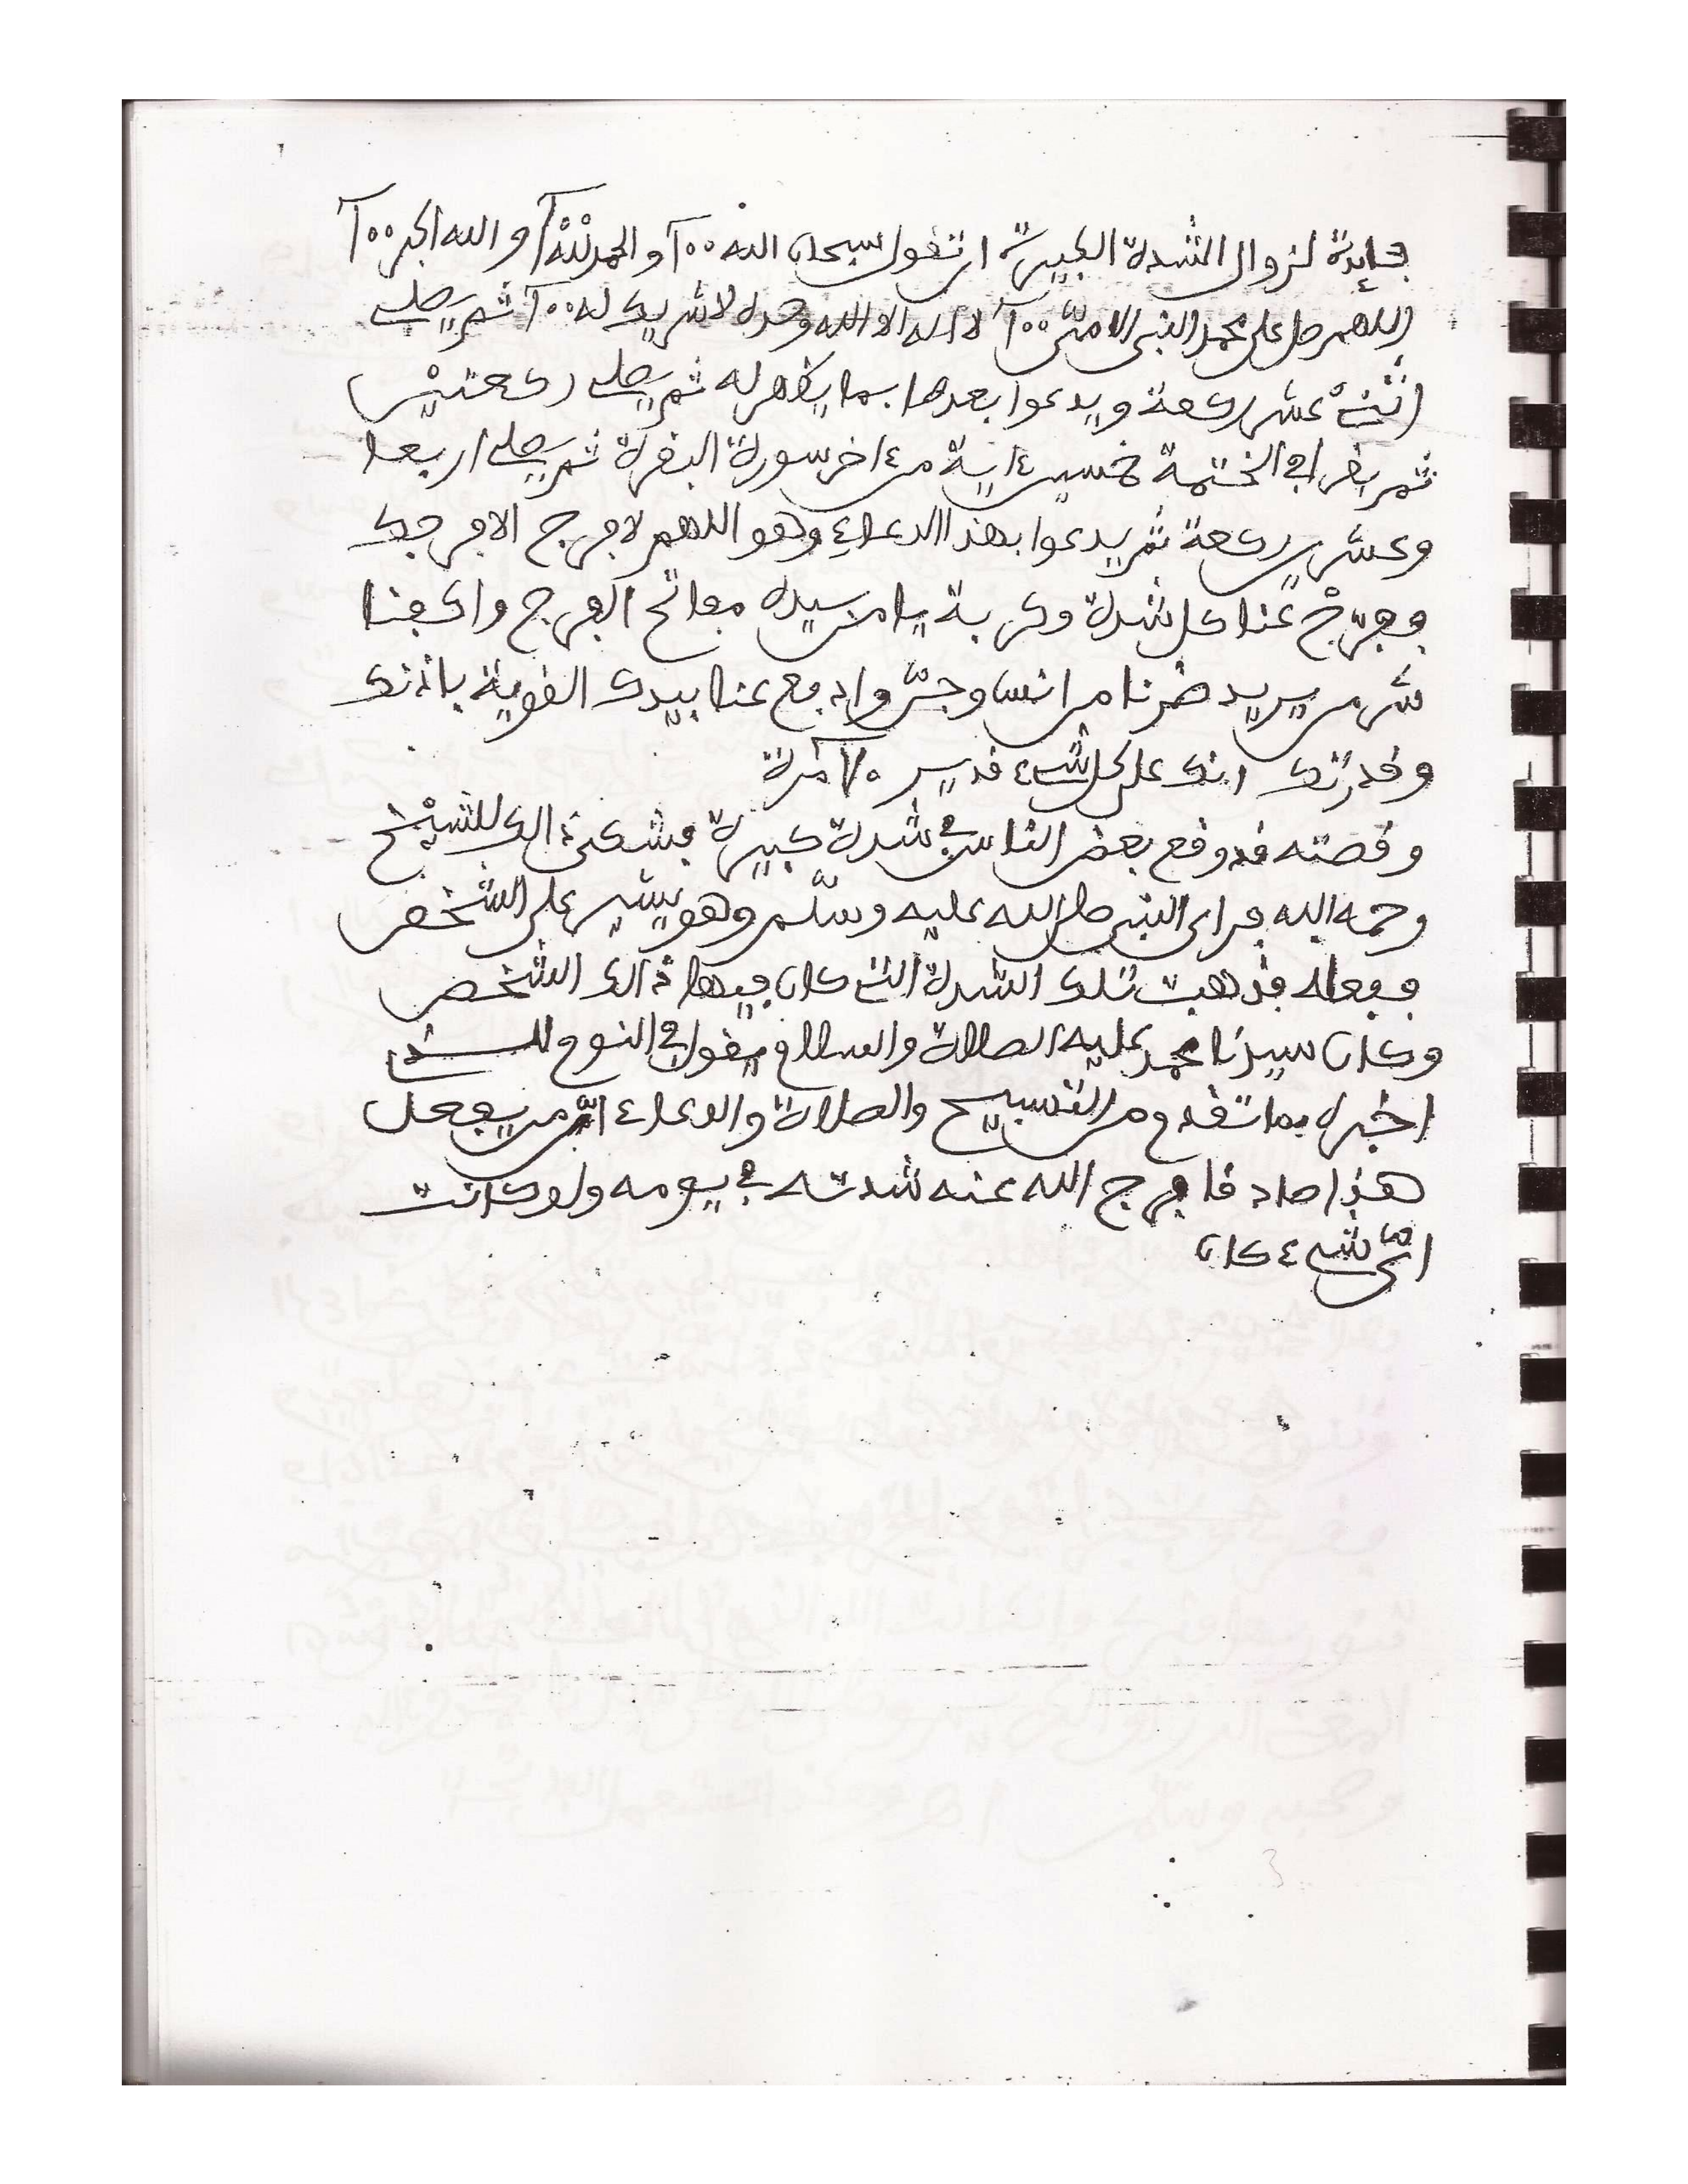 فايدة لزوال الشدة الكبيرة ان تقول سبحان الله ١٠٠ والحمد لله ١٠٠ والله اكبر ١٠٠
اللهم صل على محمد النبي الامي ١٠٠ لا اله الا الله وحده لا شريك له ١٠٠ ثم يصلي
اثني عشر ركعة ويدعوا بعدها بما يظهر له ثم يصلي ركعتين
ثم يقرا في الختمة خمسين ءاية من ءاخر سورة البقرة ثم يصلي اربعا
وعشرين ركعة ثم يدعوا بهذا الدعاء وهو اللهم لا فرج الا فرجك
ففرج عنا كل شدة وكربة يا من بيده مفاتح الفرج واكفنا
شر من يريد ضرنا من انسا وجن وادفع عنا بيدك القوية باذنك
وقدرتك انك على كل شيء قدير مرة
وقصته قد وقع بعض الناس في شدة كبيرة فشكى ذالك للشيخ
رحمه الله فراى النبي صلى الله عليه وسلم وهو يشير على الشخص
ففعله فذهبت تلك الشدة التي كان فيها ذالك الشخص
وكان سيدنا محمد عليه الصلاة والسلام يقول في النوم
اخبره بما تقدم من التسبيح والصلاة والدعاء من يفعل
هذا صادقا فرج الله عنه شدته في يومه ولو كانت
اي شيء كان